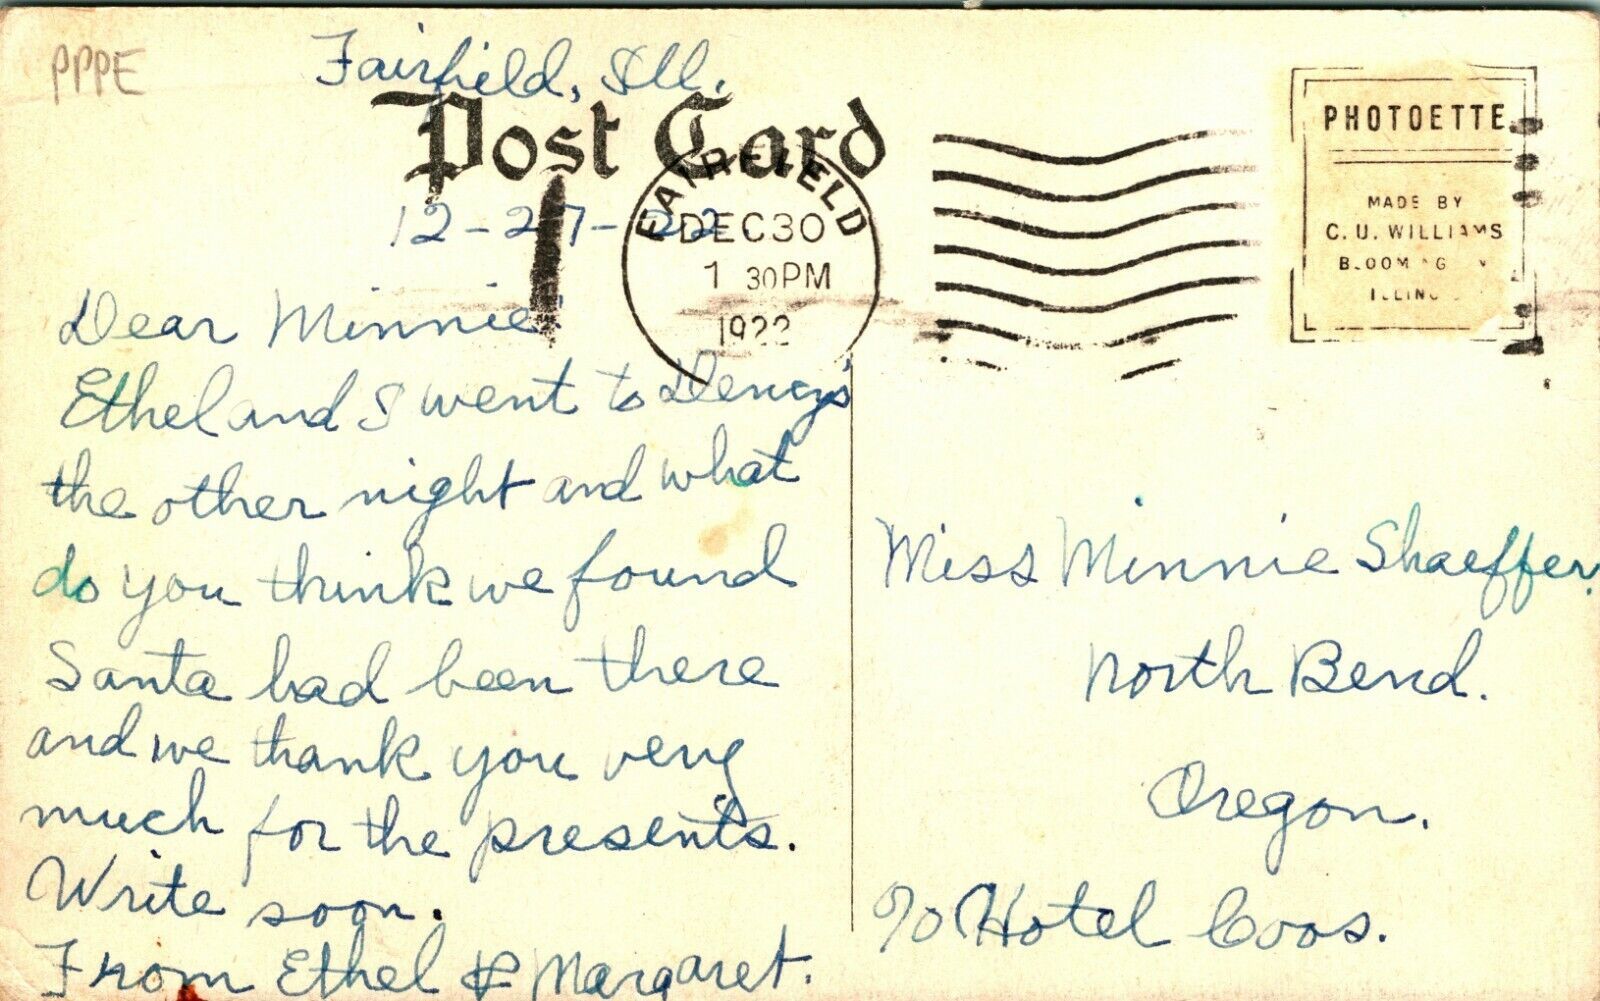 PPPE
Fairfield, Ill.
Post Card
12-27-22
FAIRFIELD
DEC 30
1 30PM
1922
PHOTOETTE
MADE BY
C. U. WILLIAMS
Dear Minnie:
Ethel and I went to
the other night and what
do you think we found
Santa had been there
and we thank you very
much for the presents.
Write soon.
From Ethel & Margaret.
Miss Minnie Shaeffer,
North Bend.
Oregon.
c/o Hotel Coos.